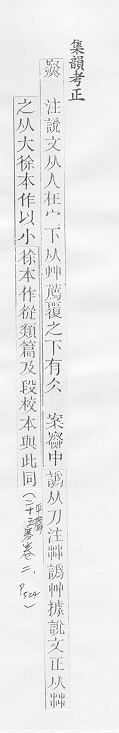 集韻考正
注說文从人在宀下从艸薦覆之下有仌 案中譌从刀注艸譌艸據說文正从艸
之从大徐本作以小徐本作從類篇及段校本與此同(平聲二十五寒卷二,P524)